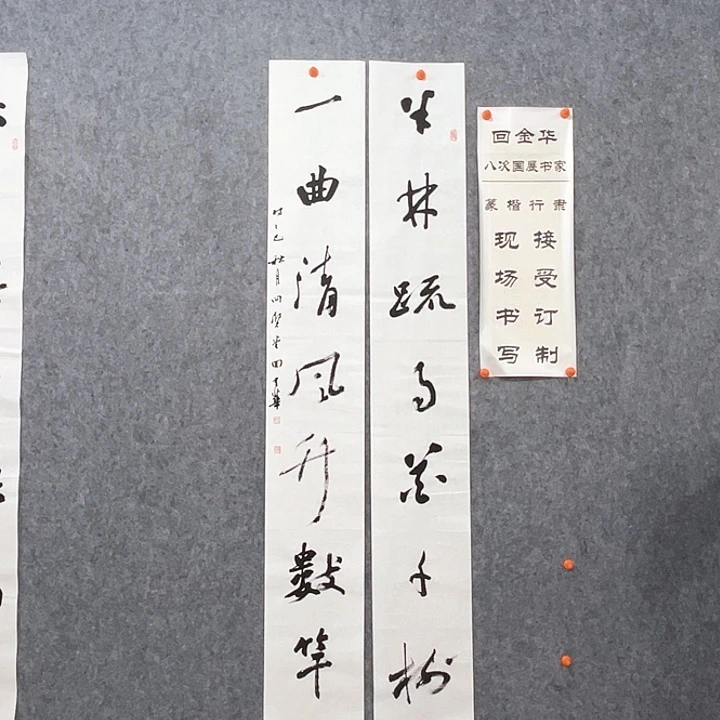 回金华
八次国展书家
篆楷行隶
接受订制
现场书写
半林疏雨花千树
一曲清风竹数竿
秋月 回金华